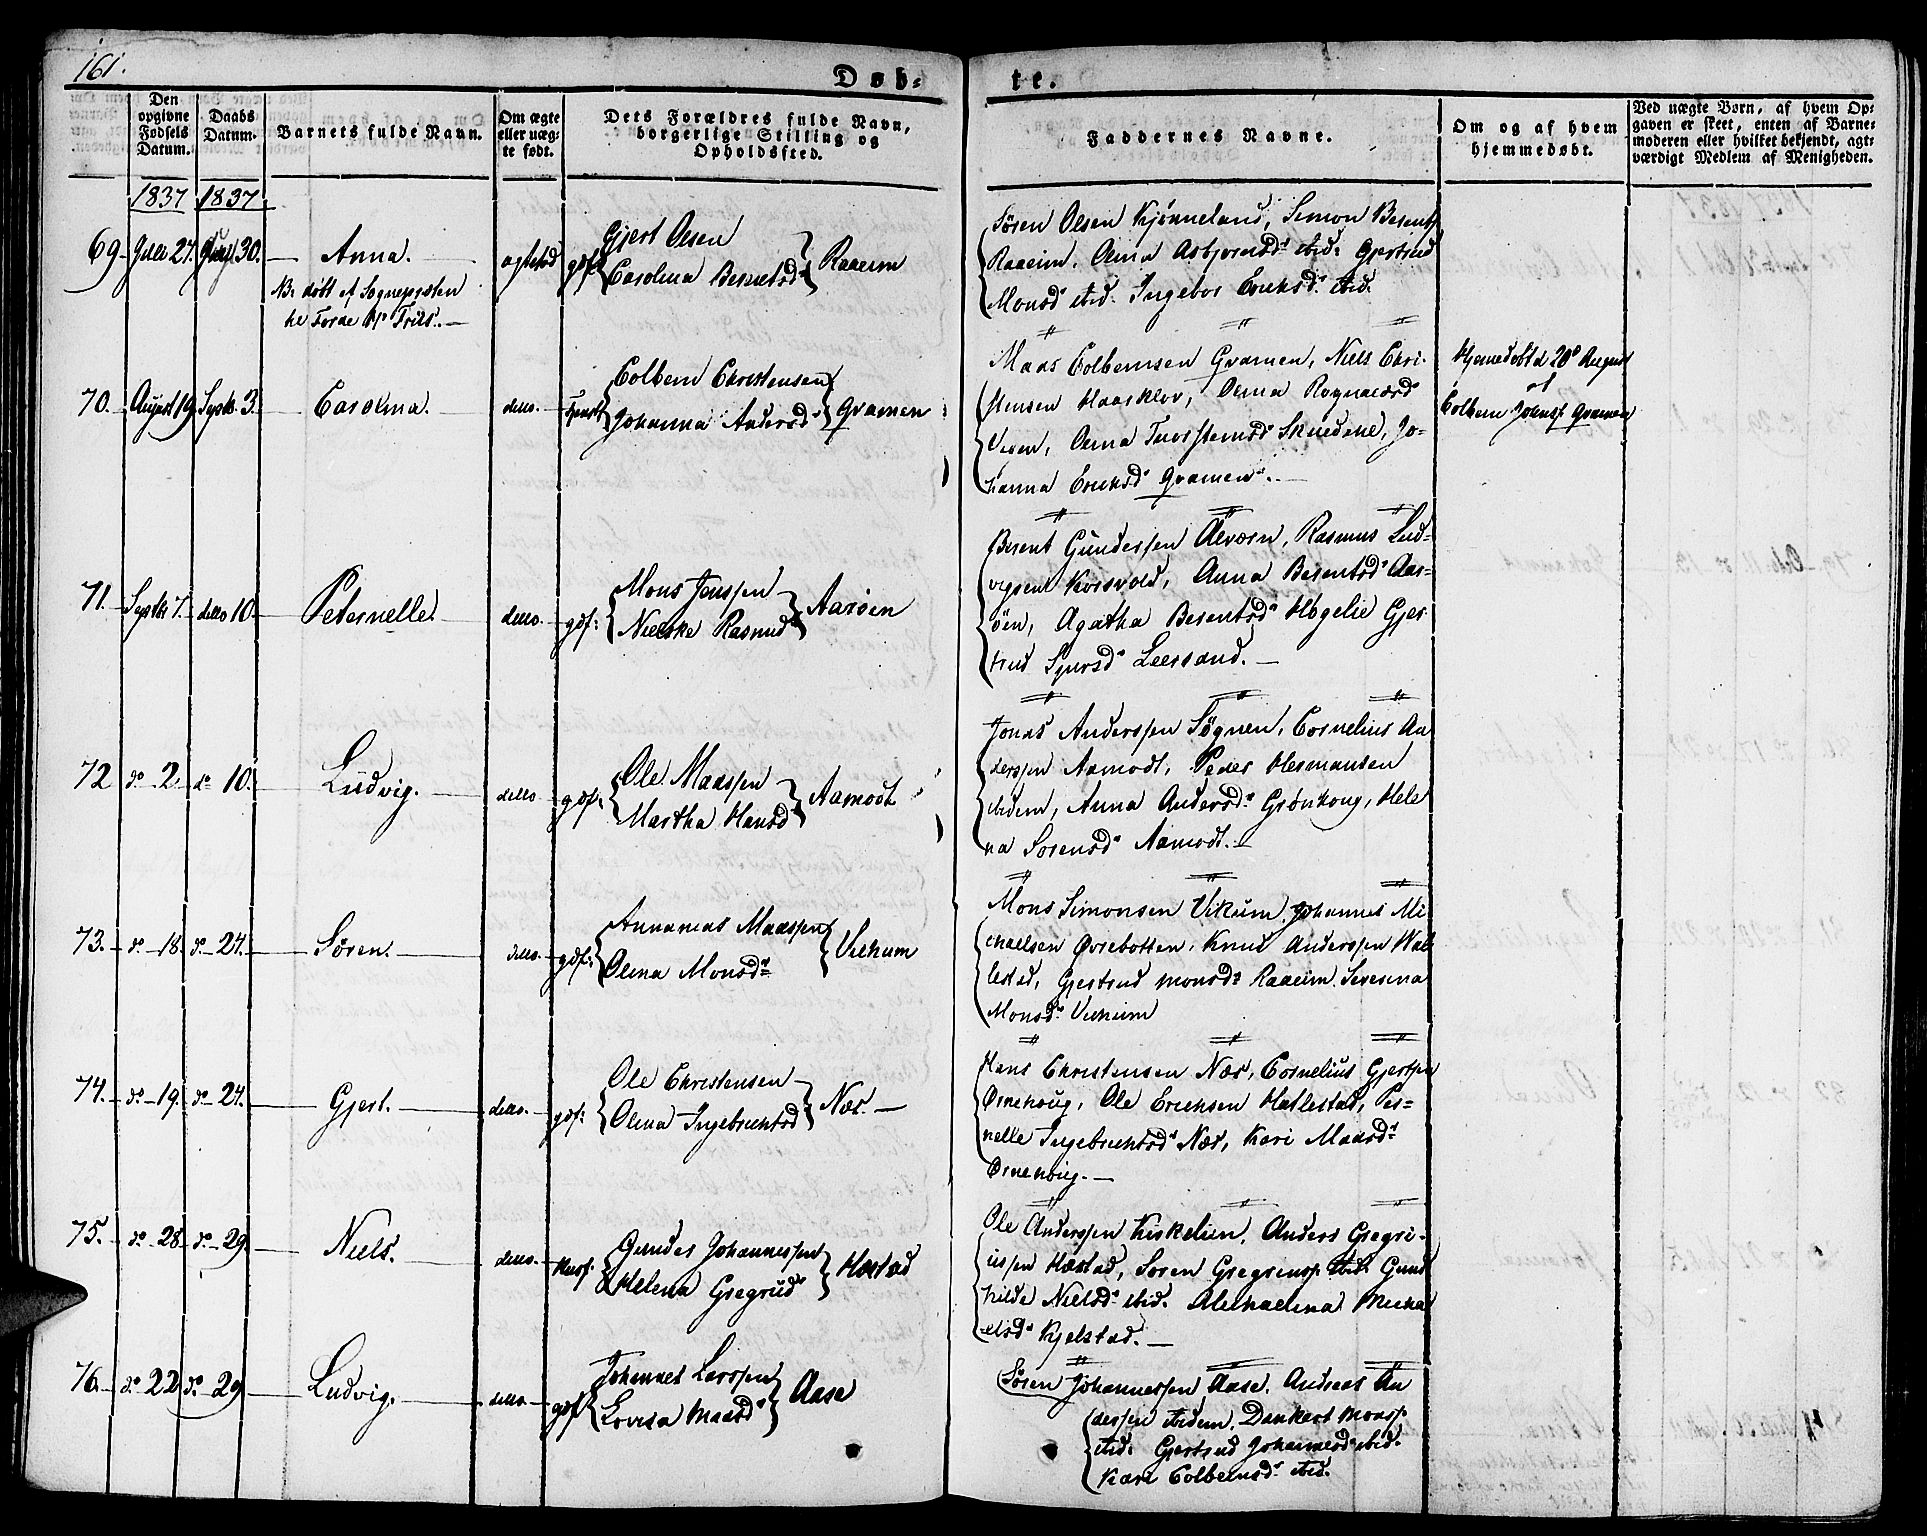 161.
Døb-
te.
Den opgivne Fødsels Datum.
Daabs Datum.
Barnets fulde Navn.
Om ægte eller uæg-te født.
Dets Forældres fulde Navn, borgerlige Stilling og Opholdssted.
Faddernes Navne.
Om og af hvem hjemmedøbt.
Ved uægte Børn, af hvem Op-
gaven er skeet, enten af Barne-
moderen eller hvilket bekjendt, agt-
værdigt Medlem af Menigheden.
1837 1837
69. 27. 30. Anna. gdf: Gjert Olsen
Carolina Berentsd. Raaeim
NB. døbt af Sognepræsten
Søren Olsen Kjønneland, Simon Berents.
Raaeim, Olina Asbjørnsd. ibid: Gjertrud
Monsd. ibid. Ingebor Ericksd. ibid.
70. August 19. Septb. 3. Carolina. detto. Colbein Christensen
Johanna Andersd. Gramen
Maas Colbeinsen Gramen, Niels Chri-
stensen Haarklov, Olina Rognaldsd.
Olina Thorsteinsd. Jo-
hanna Ericksd. Gramen.
Hjemmedøbt d. 20de August
af
Colbein Johnsp. Gramen
71. Septb. 7. detto 10. Peternelle. detto. gdf: Mons Jenssen
Rasmusd. Aarøen
Berent Gunderssen Rasmus Lud-
vigsen Korsvold, Anna Berentsd. Aar-
øen, Agatha Berentsd. Høgelie Gjer-
trud Sjursd. Leersand.
72. do. 2. do. 10. Ludvig. detto. gdf: Ole Maassen
Martha Hansd. Aamodt
Jonas Anderssen Søgnen, Cornelius An
derssen Aamodt, Peder Hermansen
ibidem, Anna Andersd. Grønhoug, Hele
na Sørensd. Aamodt.
73. do. 18. do. 24. Søren. detto. gdf: Annanias Maassen
Olina Monsd.
Mons Simonsen Vikum, Johannes Mi
chaelsen Øvrebotten, Knud Anderssen Hat
lestad, Gjertrud Monsd. Raaeim. Severina
Monsd.
74. do. 19. do. 24. Gjert. detto. gdf: Ole Christensen
Olina Ingebrichtsd. Nær.
Hans Christensen Nær, Cornelius Gjertsen
Ørnehoug, Ole Ericksen Hatlestad, Per-
nelle Ingebrichtsd. Nær, Kari Maasd.
Ørnehoug.
75. do. 28. do. 29. Niels. detto. Gunder Johannessen
Helena Gregrud. Hæstad
Ole Anderssen Kirkelien, Anders Gregri-
ussen Hæstad, Søren Gregriusp. ibid. Gund
hilde Nielsd. ibid. Michaelina Micha
elsd. Kjelstad.
76. do. 22 do. 29. Ludvig. detto. gdf: Johannes Larssen
Lovisa Maasd. Aase
Søren Johannessen Aase, Andreas An
derssen ibidem, Dankert Monsp.
ibid. Gjertrud Johannesd. ibid.
Kari Colbeinsd. ibid.